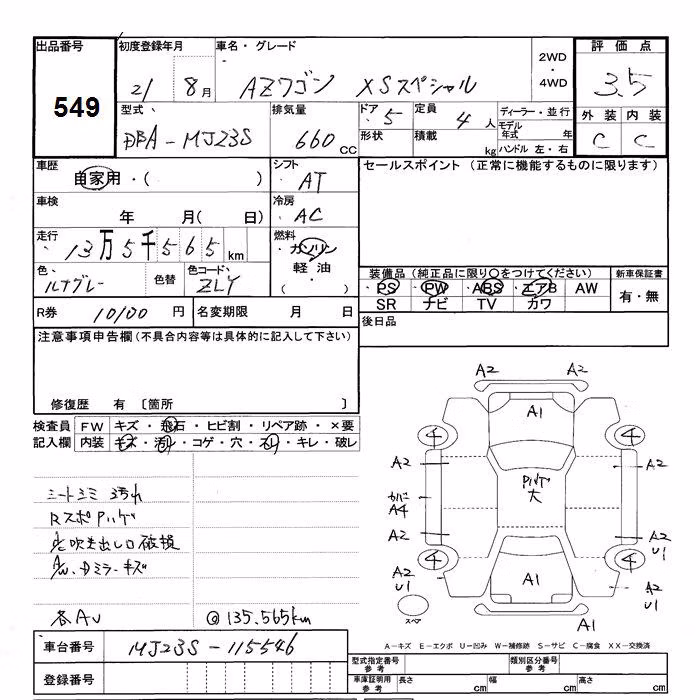 出品番号 初度登録年月 車名・グレード 評価点
549 21 8月 AZワゴン XSスペシャル 2WD・4WD 3.5
型式 排気量 ドア 5 定員 4人 ディーラー・並行 外装 内装
DBA-MJ23S 660 CC 形状 積載 kg モデル年式 年 ハンドル 左・右 C C
車歴 シフト セールスポイント (正常に機能するものに限ります)
自家用・( ) AT
車検 冷房
年 月( 日) AC
走行 燃料
13万5千565km ガソリン
色 色替 色コード 軽油 装備品 (純正品に限り○をつけてください) 新車保証書
ルナグレー ZLY ( ) PS PW ABS エアB AW 有・無
SR ナビ TV カワ
R券 10100 円 名変期限 月 日 後日品
注意事項申告欄 (不具合内容等は具体的に記入して下さい)
修復歴 有 〔箇所 〕
検査員 FW キズ・飛石・ヒビ割・リペア跡・×要
記入欄 内装 キズ・汚レ・コゲ・穴・スレ・キレ・破レ
シートシミ 汚れ
RスポPハゲ
A/C吹き出し口破損
キズ
各AU
@135.565km
A2 A2
A1
4 4
A2 A2
Pハゲ
大
A4
A2 A2
U1
4 4
A2 A1 A2
U1 U1
スペア A1
A-キズ E-エクボ U-凹み W-補修跡 S-サビ C-腐食 XX-交換済
車台番号 MJ23S-115546
型式指定番号 参考 類別区分番号 参考
登録番号 車庫証明用 参考 長さ cm 幅 cm 高さ cm